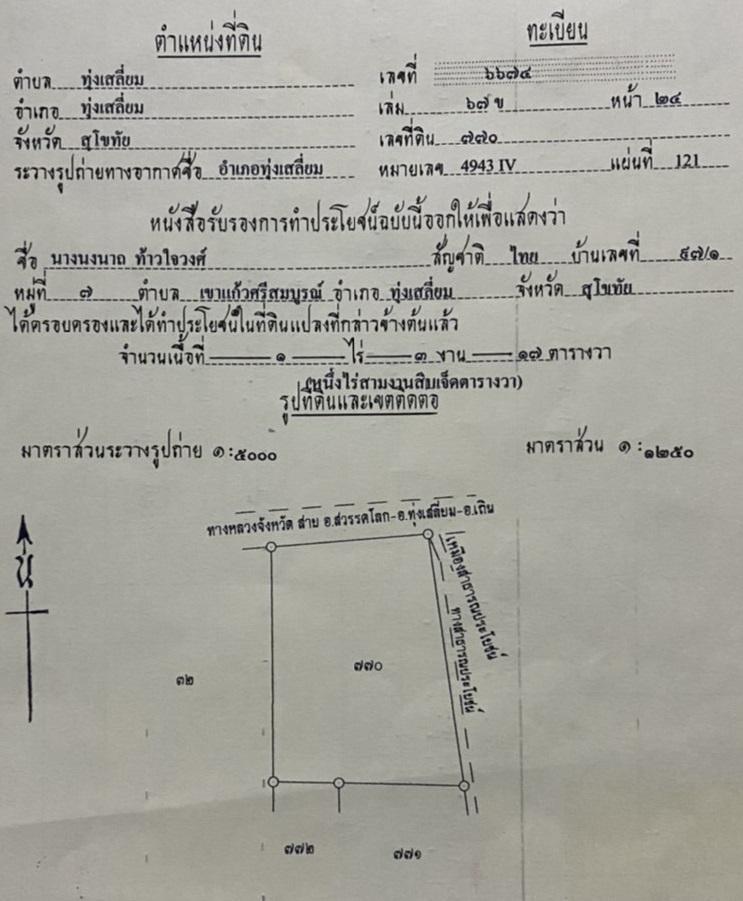 ตำแหน่งที่ดิน ทะเบียน
ตำบล ทุ่งเสลี่ยม เลขที่ ๖๖๗๔
อำเภอ ทุ่งเสลี่ยม เล่ม ๖๗ ข หน้า ๒๔
จังหวัด สุโขทัย เลขที่ดิน ๗๗๐
ระวางรูปถ่ายทางอากาศชื่อ อำเภอทุ่งเสลี่ยม หมายเลข 4943 IV แผ่นที่ 121
หนังสือรับรองการทำประโยชน์ฉบับนี้ออกให้เพื่อแสดงว่า
ชื่อ นางนงนาถ ท้าวใจวงศ์ สัญชาติ ไทย บ้านเลขที่ ๕๗/๑
หมู่ที่ ๗ ตำบล เขาแก้วศรีสมบูรณ์ อำเภอ ทุ่งเสลี่ยม จังหวัด สุโขทัย
ได้ครอบครองและได้ทำประโยชน์ในที่ดินแปลงที่กล่าวข้างต้นแล้ว
จำนวนเนื้อที่ ๑ ไร่ ๓ งาน ๑๗ ตารางวา
(หนึ่งไร่สามงานสิบเจ็ดตารางวา)
รูปที่ดินและเขตติดต่อ
มาตราส่วนระวางรูปถ่าย ๑:๕๐๐๐ มาตราส่วน ๑:๑๒๕๐
ทางหลวงจังหวัด สาย อ.สวรรคโลก-อ.ทุ่งเสลี่ยม-อ.เถิน
น
เหมืองสาธารณประโยชน์
ทางสาธารณประโยชน์
๗๗๐
๓๒
๗๗๒ ๗๗๑